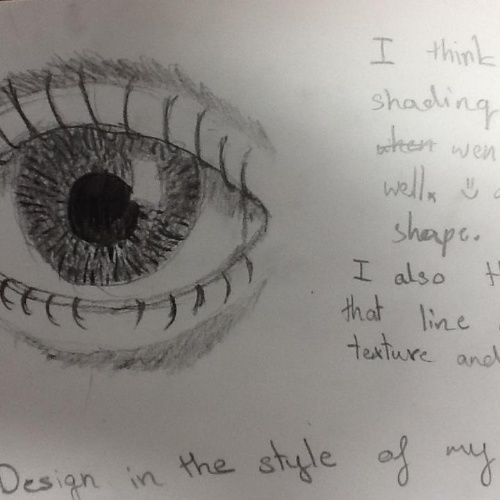 I think
shading
when wen
well. ☺
shape.
I also th
that line
texture and
Design in the style of my